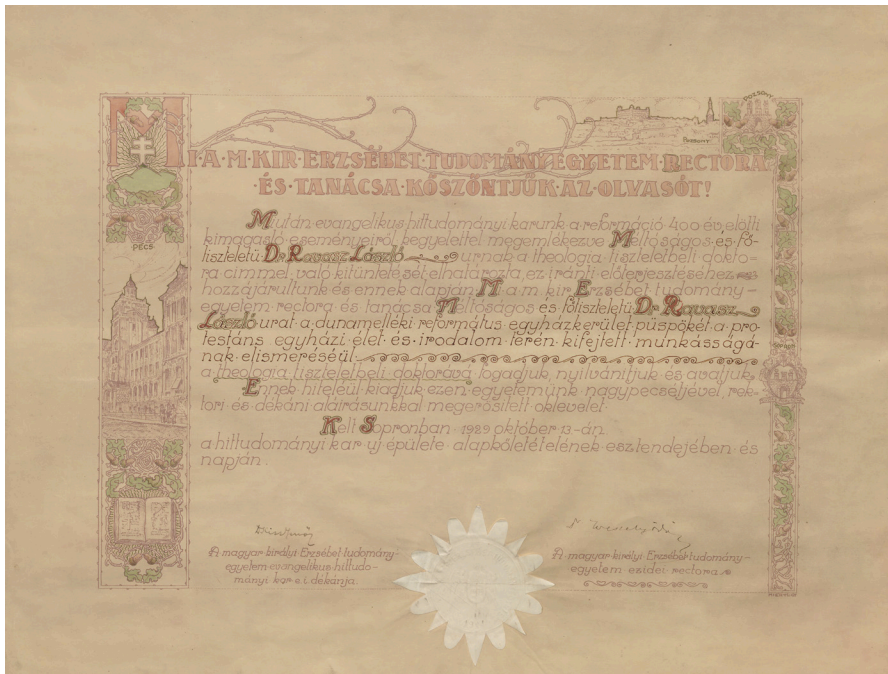 POZSONY
POZSONY
MI·A·M·KIR·ERZSÉBET·TUDOMÁNYEGYETEM·RECTORA
·ÉS·TANÁCSA·KÖSZÖNTJÜK·AZ·OLVASÓT!
PÉCS
Miután·evangelikus·hittudományi·karunk·a·reformáció·400·év·előtti
kimagasló·eseményeiről·kegyelettel·megemlékezve·Méltóságos·és·fő-
tiszteletü·Dr·Ravasz·László urnak·a·theologia·tiszteletbeli·dokto-
ra·címmel·való·kitüntetését·elhatározta·ez·iránti·előterjesztéséhez
hozzájárultunk·és·ennek·alapján·Mi·a·m·kir·Erzsébet·tudomány-
egyetem·rectora·és·tanácsa·Méltóságos·és·főtiszteletü·Dr·Ravasz
László·urat·a·dunamelléki·református·egyházkerület·püspökét·a·pro-
testáns·egyházi·élet·és·irodalom·terén·kifejtett·munkásságá-
nak·elismeréséül
a·theologia·tiszteletbeli·doktorává·fogadjuk,·nyilvánítjuk·és·avatjuk.
Ennek·hiteléül·kiadjuk·ezen·egyetemünk·nagypecsétjével,·rek-
tori·és·dékáni·aláírásunkkal·megerősített·oklevelet·
Kelt·Sopronban·1929·október·13-án
a·hittudományi·kar·uj·épülete·alapkőletételének·esztendejében·és
napján.
A·magyar·királyi·Erzsébet·tudomány-
egyetem·evangelikus·hittudo-
mányi·kar·e·i·dékánja.
A·magyar·királyi·Erzsébet·tudomány-
egyetem·ezidei·rectora